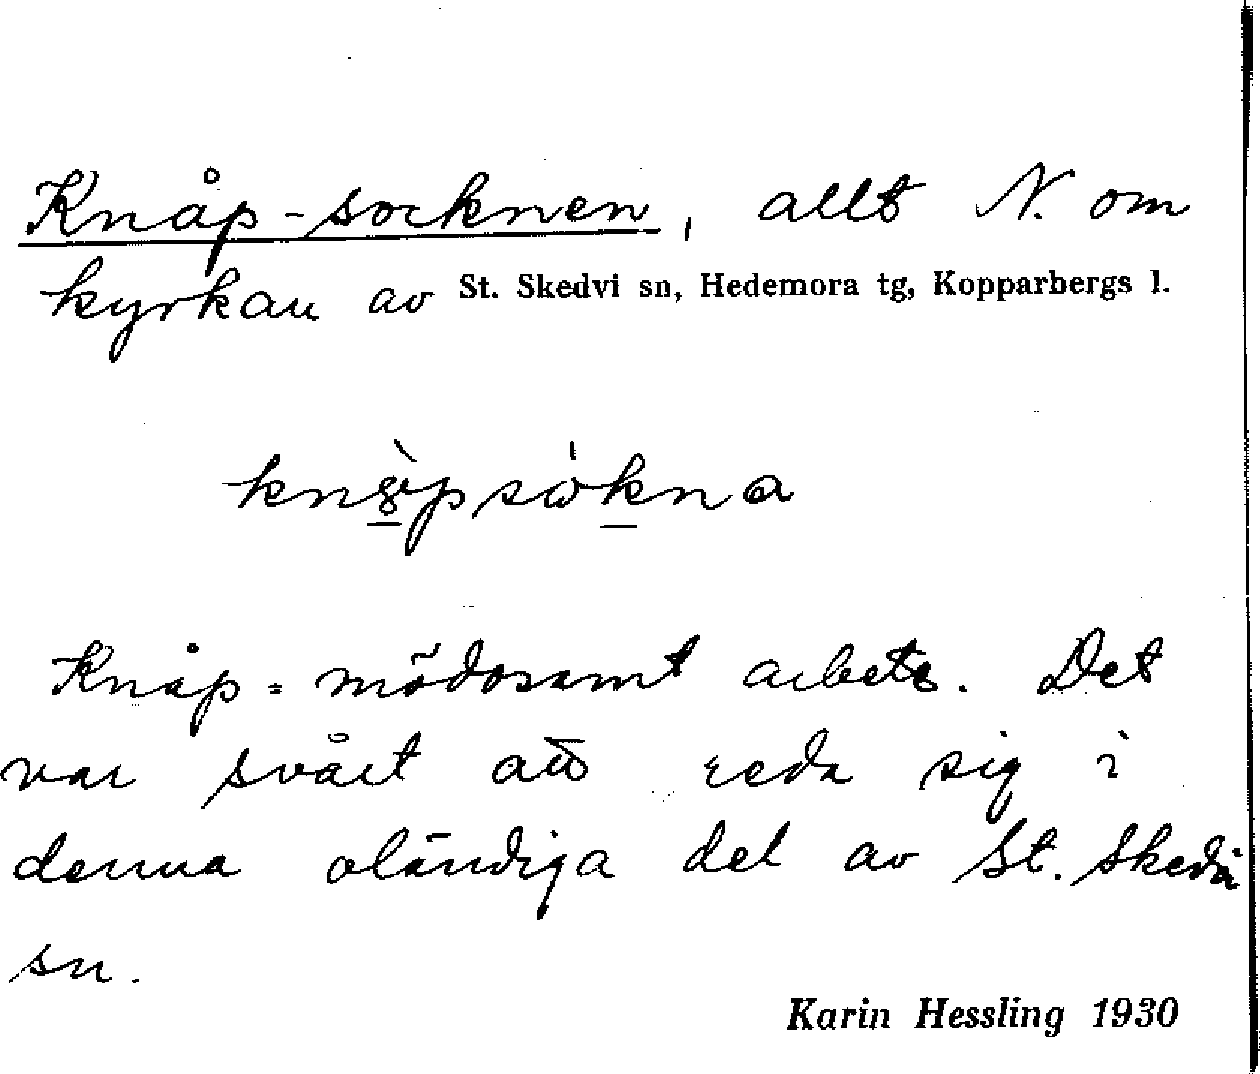 Knåp-socknen, allt N. om
kyrkan av St. Skedvi sn, Hedemora tg, Kopparbergs l.
Knåp = mödosamt arbete. Det
var svårt att reda sig i
denna oländiga del av St. Skedvi
sn.
Karin Hessling 1930